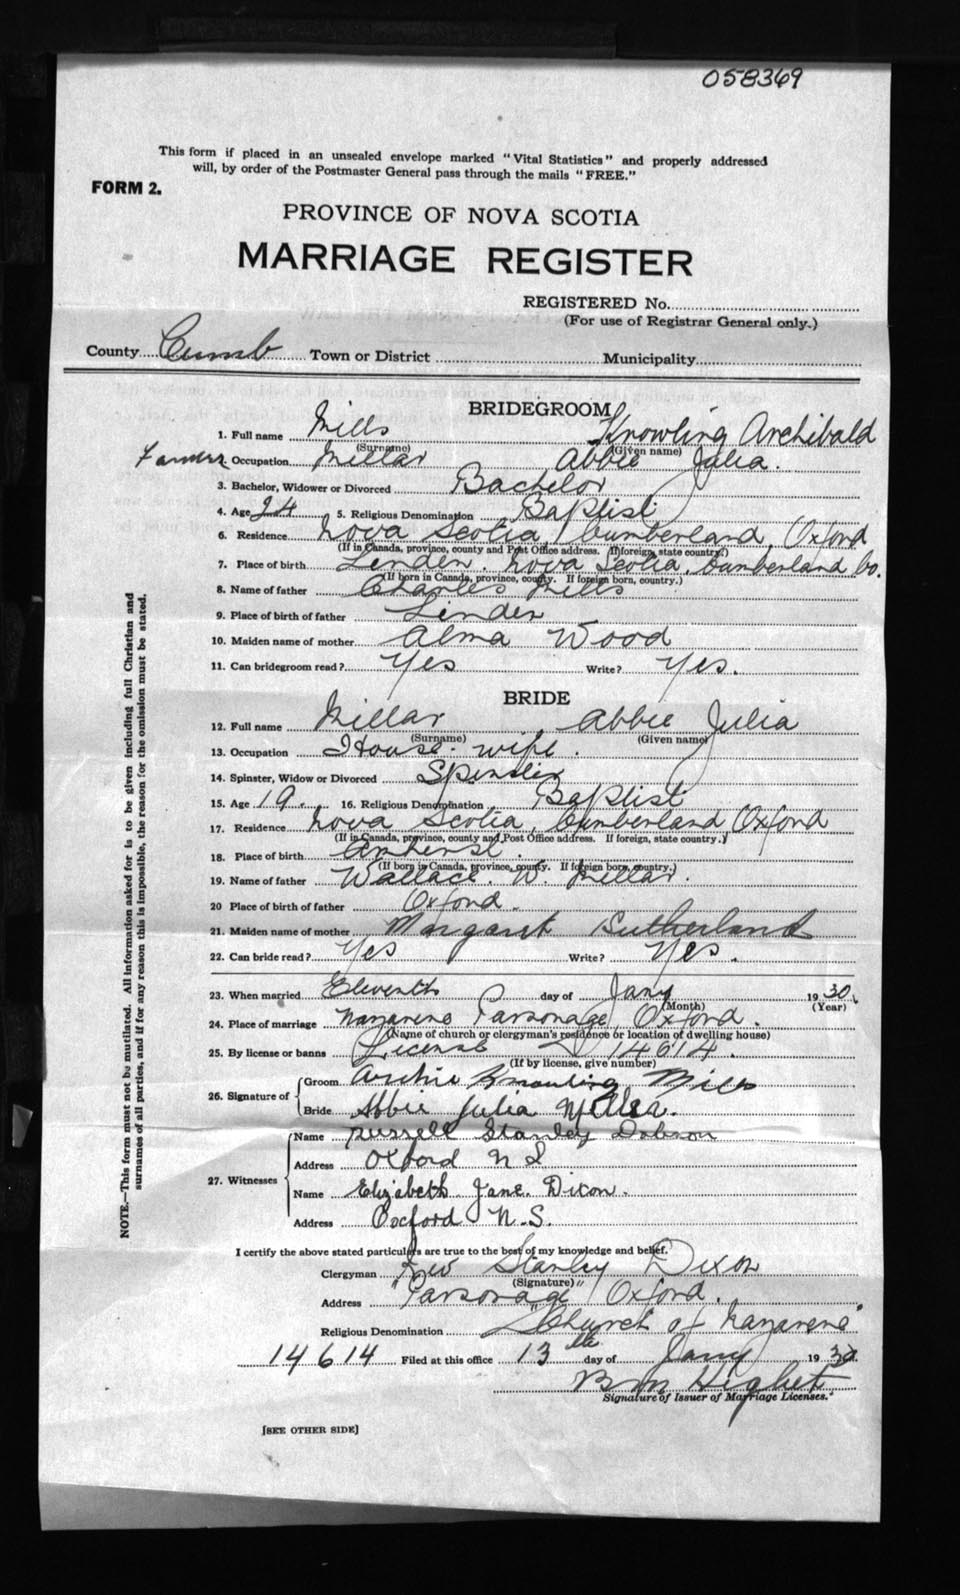 058369
This form if placed in an unsealed envelope marked "Vital Statistics" and properly addressed
will, by order of the Postmaster General pass through the mails "FREE."
FORM 2.
PROVINCE OF NOVA SCOTIA
MARRIAGE REGISTER
REGISTERED No.
(For use of Registrar General only.)
County Cumb Town or District Municipality
BRIDEGROOM
1. Full name Mills Knowling Archibald
(Surname) (Given name)
Farmer Occupation Millar Abbie Julia.
3. Bachelor, Widower or Divorced Bachelor
4. Age 24 5. Religious Denomination Baptist
6. Residence Nova Scotia, Cumberland, Oxford
(If in Canada, province, county and Post Office address. If foreign, state country.)
7. Place of birth Linden. Nova Scotia, Cumberland Co.
(If born in Canada, province, county. If foreign born, country.)
8. Name of father Charles Mills
9. Place of birth of father Linden
10. Maiden name of mother Alma Wood
11. Can bridegroom read? Yes Write? Yes.
BRIDE
12. Full name Millar Abbie Julia
(Surname) (Given name)
13. Occupation House-wife.
14. Spinster, Widow or Divorced Spinster
15. Age 19. 16. Religious Denomination Baptist
17. Residence Nova Scotia, Cumberland Oxford
(If in Canada, province, county and Post Office address. If foreign, state country.)
18. Place of birth Amherst.
(If born in Canada, province, county. If foreign born, country.)
19. Name of father Wallace. W. Millar.
20 Place of birth of father Oxford.
21. Maiden name of mother Margaret Sutherland
22. Can bride read? Yes Write? Yes.
23. When married Eleventh day of Jany 1930
(Month) (Year)
24. Place of marriage Nazarene Parsonage, Oxford.
(Name of church or clergyman's residence or location of dwelling house)
25. By license or banns License 14614.
(If by license, give number)
26. Signature of Groom Archie Knowling Mills
Bride Abbie Julia Millar.
27. Witnesses Name Russell Stanley Dobson
Address Oxford N S
Name Elizabeth Jane Dixon.
Address Oxford N.S.
I certify the above stated particulars are true to the best of my knowledge and belief.
Clergyman Rev Stanley Dixon
(Signature)
Address "Parsonage" Oxford.
Religious Denomination "Church of Nazarene"
14614 Filed at this office 13th day of Jany 1930.
Signature of Issuer of Marriage Licenses.
[SEE OTHER SIDE]
NOTE.—This form must not be mutilated. All information asked for is to be given including full Christian and
surnames of all parties, and if for any reason this is impossible, the reason for the omission must be stated.